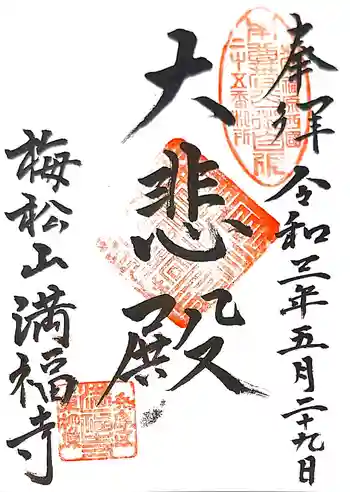 奉拝 令和三年五月二十九日
大悲殿
梅松山満福寺